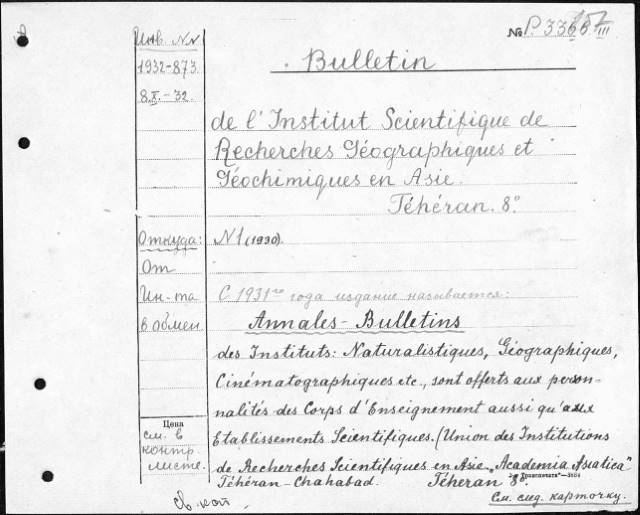 Инв. №№
1932-873.
8.X-32.
№ P. 3366. III
Bulletin
de l'Institut Scientifique de
Recherches Géographiques et
Géochimiques en Asie.
Téhéran. 8°.
Откуда:
От
Ин-та
в обмен
N 1 (1930).
С 1931го года издание называется:
Annales-Bulletins
des Instituts: Naturalistiques, Géographiques,
Cinématographiques etc., sont offerts aux person-
nalités des Corps d'Enseignement aussi qu'aux
Etablissements Scientifiques. (Union des Institutions
de Recherches Scientifiques en Asie „Academia Asiatica"
Téhéran-Chahabad. Téheran 8°.
Цена
см. в
контр.
листе.
См. след. карточку.